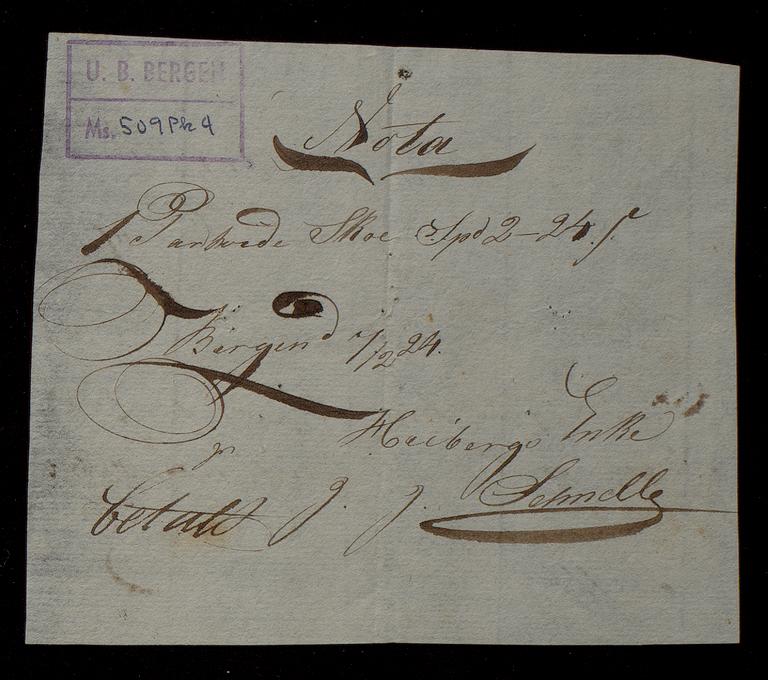 U. B. BERGEN
Ms. 509 Pk 4
Nota
1 Par hvide Skoe Spd 2 – 24 s
Bergen d 7/12 24.
Heibergs Enke
betalt J. J. Schnelle